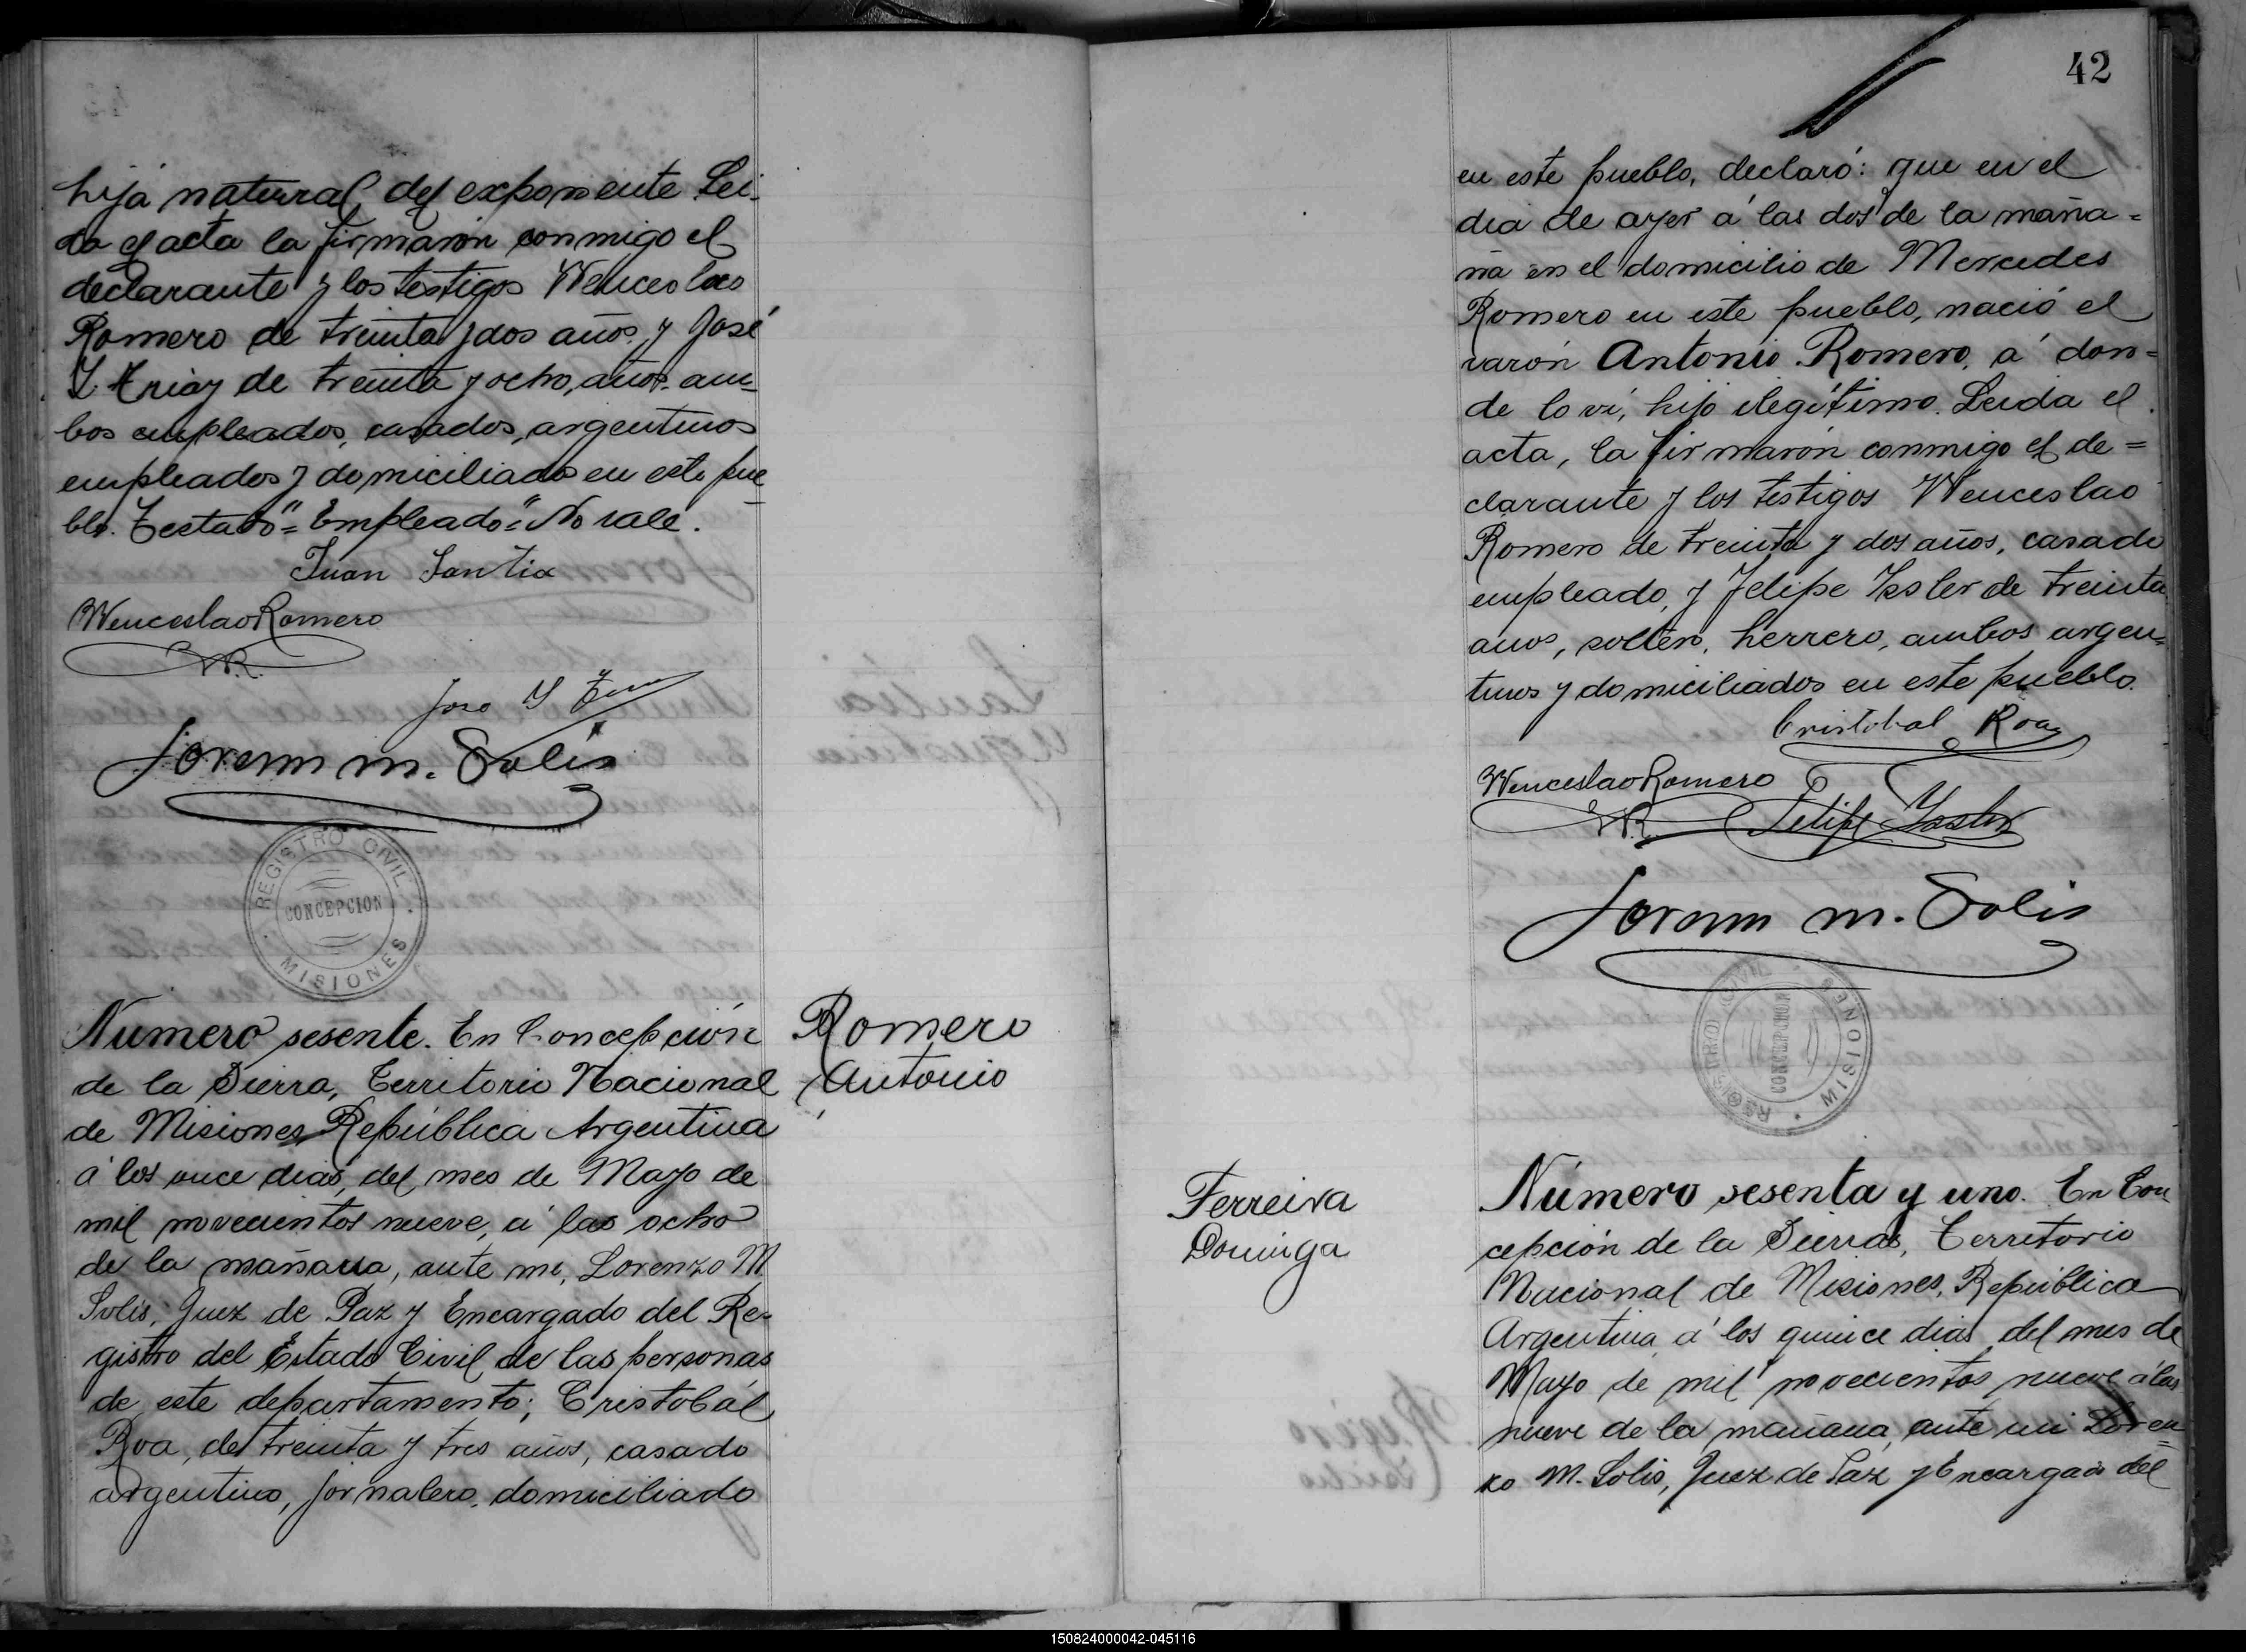 hija natural del exponente Lei-
da el acta la firmarón conmigo el
declarante y los testigos Wenceslao
Romero de treinta y dos años y José
de treinta y ocho, años am-
bos empleados, casados, argentinos
empleados y domiciliado en este pue
blo. Testado "= Empleado "= No vale.
Juan Santia
Wenceslao Romero
W.R.
Jose Y
Lorenzo M. Solis
REGISTRO CIVIL
CONCEPCION
MISIONES
Numero sesente. En Concepción
de la Sierra, Territorio Nacional
de Misiones República Argentina
á los once dias, del mes de Mayo de
mil novecientos nueve, á las ocho
de la mañana, ante mi, Lorenzo M.
Solis, Juez de Paz y Encargado del Re-
gistro del Estado Civil de las personas
de este departamento; Cristobál
Roa, de treinta y tres años, casado
argentino, jornalero, domiciliado
Romero
Antonio
42
en este pueblo, declaró: que en el
dia de ayer á las dos de la maña=
na en el domicilio de Mercedes
Romero en este pueblo, nació el
varón Antonio Romero, á don=
de lo ví, hijo ilegítimo. Leida el
acta, la firmarón conmigo el de=
clarante y los testigos Wenceslao
Romero de treinta y dos años, casado
empleado, y Felipe de treinta
anos, soltero, herrero, ambos argen=
tinos y domiciliados en este pueblo.
Cristobal Roa
Wenceslao Romero
W.R.
Felipe
Lorenzo M. Solis
REGISTRO CIVIL
CONCEPCION
MISIONES
Ferreira
Dominga
Número sesenta y uno. En Con
cepción de la Sierra, Territorio
Nacional de Misiones, República
Argentina á los quince dias del mes de
Mayo de mil novecientos nueve á las
nueve de la mañana, ante mi Loren=
zo M. Solis, Juez de Paz y Encargado del
150824000042-045116